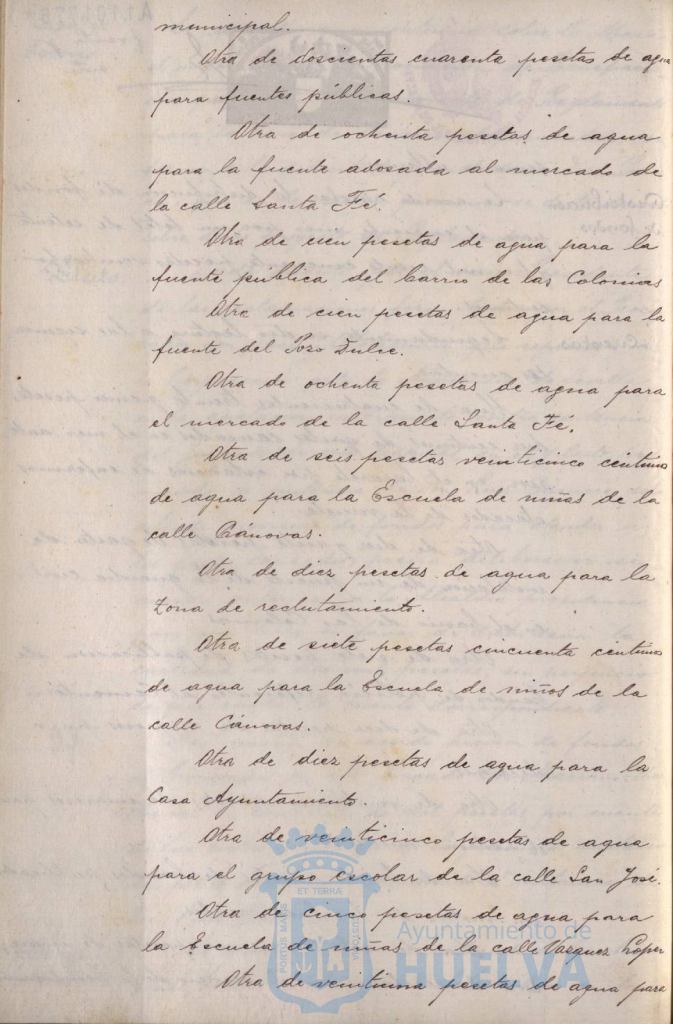 municipal.
Otra de doscientas cuarenta pesetas de agua
para fuentes públicas.
Otra de ochenta pesetas de agua
para la fuente adosada al mercado de
la calle Santa Fé.
Otra de cien pesetas de agua para la
fuente pública del barrio de las Colonias
Otra de cien pesetas de agua para la
fuente del Pozo Dulce.
Otra de ochenta pesetas de agua para
el mercado de la calle Santa Fé.
Otra de seis pesetas veinticinco céntimos
de agua para la Escuela de niñas de la
calle Cánovas.
Otra de diez pesetas de agua para la
Zona de reclutamiento.
Otra de siete pesetas cincuenta céntimos
de agua para la Escuela de niños de la
calle Cánovas.
Otra de diez pesetas de agua para la
Casa Ayuntamiento.
Otra de veinticinco pesetas de agua
para el grupo escolar de la calle San José.
Otra de cinco pesetas de agua para
la Escuela de niñas de la calle Vazquez Lopez
Otra de veintiuna pesetas de agua para
PORTUS MARIS
ET TERRÆ
CUSTODIA
Ayuntamiento de
HUELVA